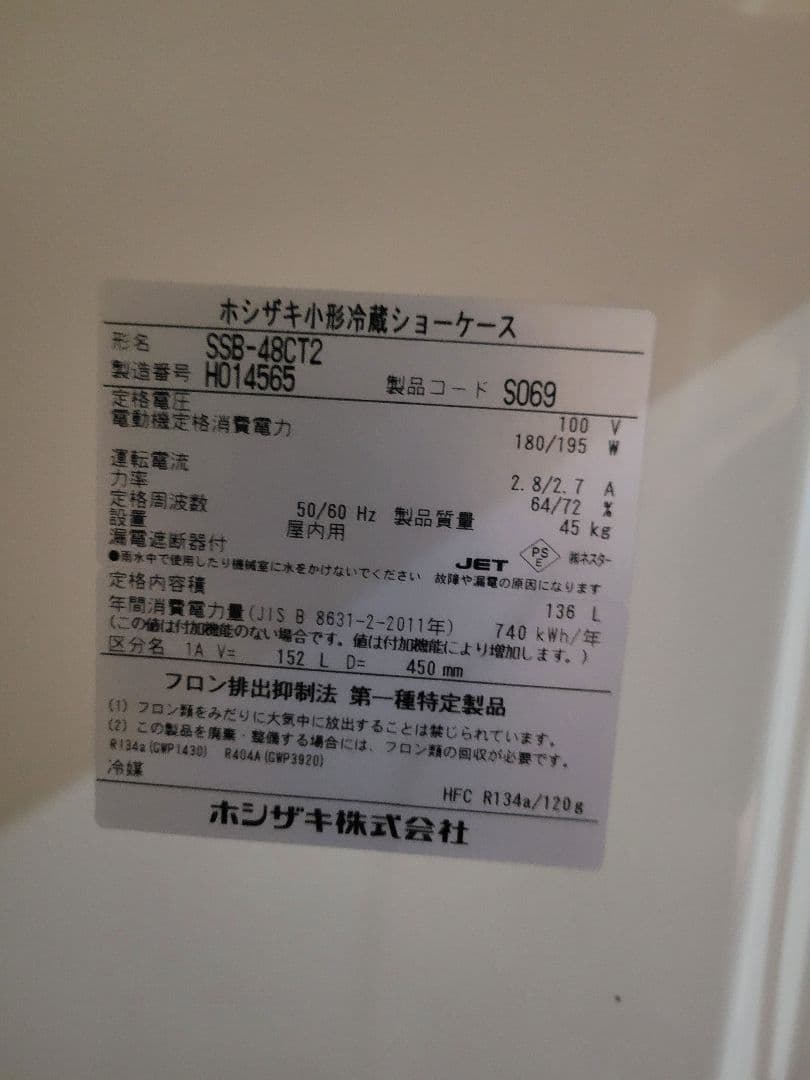 ホシザキ小形冷蔵ショーケース
形名 SSB-48CT2
製造番号 H014565 製品コード S069
定格電圧 100 V
電動機定格消費電力 180/195 W
運転電流 2.8/2.7 A
力率 64/72 %
定格周波数 50/60 Hz 製品質量 45 kg
設置 屋内用
漏電遮断器付 JET PS E ㈱ネスター
●雨水中で使用したり機械室に水をかけないでください 故障や漏電の原因になります
定格内容積 136 L
年間消費電力量(JIS B 8631-2-2011年) 740 kWh/年
(この値は付加機能のない場合です。値は付加機能により増加します。)
区分名 1A V= 152 L D= 450 mm
フロン排出抑制法 第一種特定製品
(1) フロン類をみだりに大気中に放出することは禁じられています。
(2) この製品を廃棄・整備する場合には、フロン類の回収が必要です。
R134a(GWP1430) R404A(GWP3920)
冷媒 HFC R134a/120g
ホシザキ株式会社